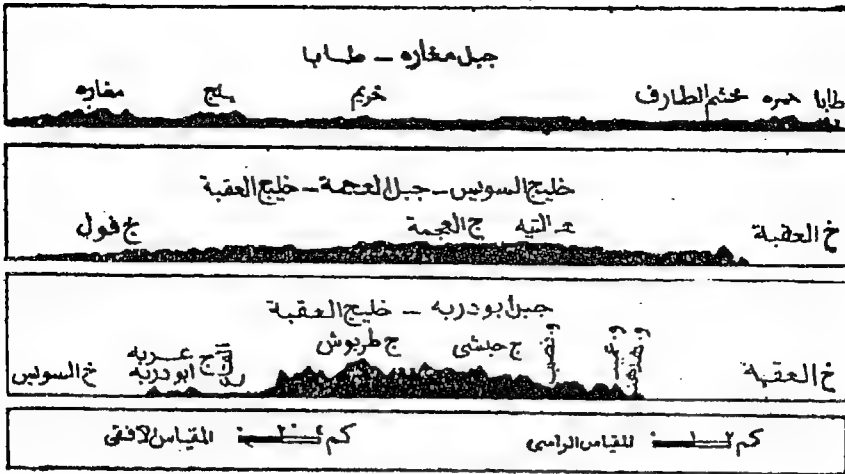 جبل مغاره - طابا
طابا حمره مخشم الطارف خريم يلج مغاره
خليج السويس - جبل العجمة - خليج العقبة
خ العقبة هـ التيه ج العجمة ج فول
جبل ابو دربه - خليج العقبة
خ العقبة و. نصب ج حبشى ج طربوش القاع ج عربه
ابو دربه خ السويس
كم ٢ ١ ٠ المقياس الراسى كم ٤٠ ٢٠ ٠ المقياس الافقى